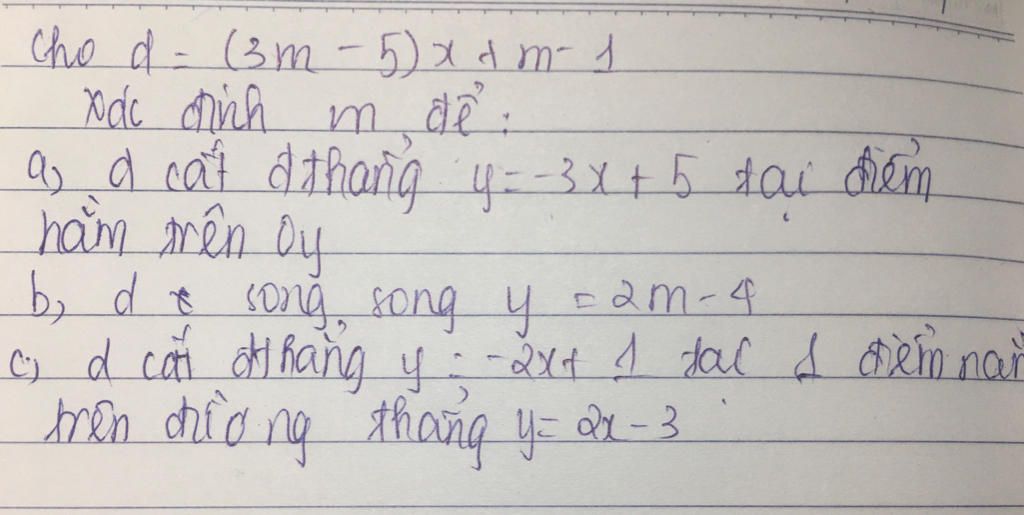 Cho d = (3m - 5)x + m - 1
xác định m để :
a, d cắt đthẳng y = -3x + 5 tại điểm
nằm trên Oy
b, d song song y = 2m - 4
c, d cắt đthẳng y = -2x + 1 tại 1 điểm nằm
trên đường thẳng y = 2x - 3